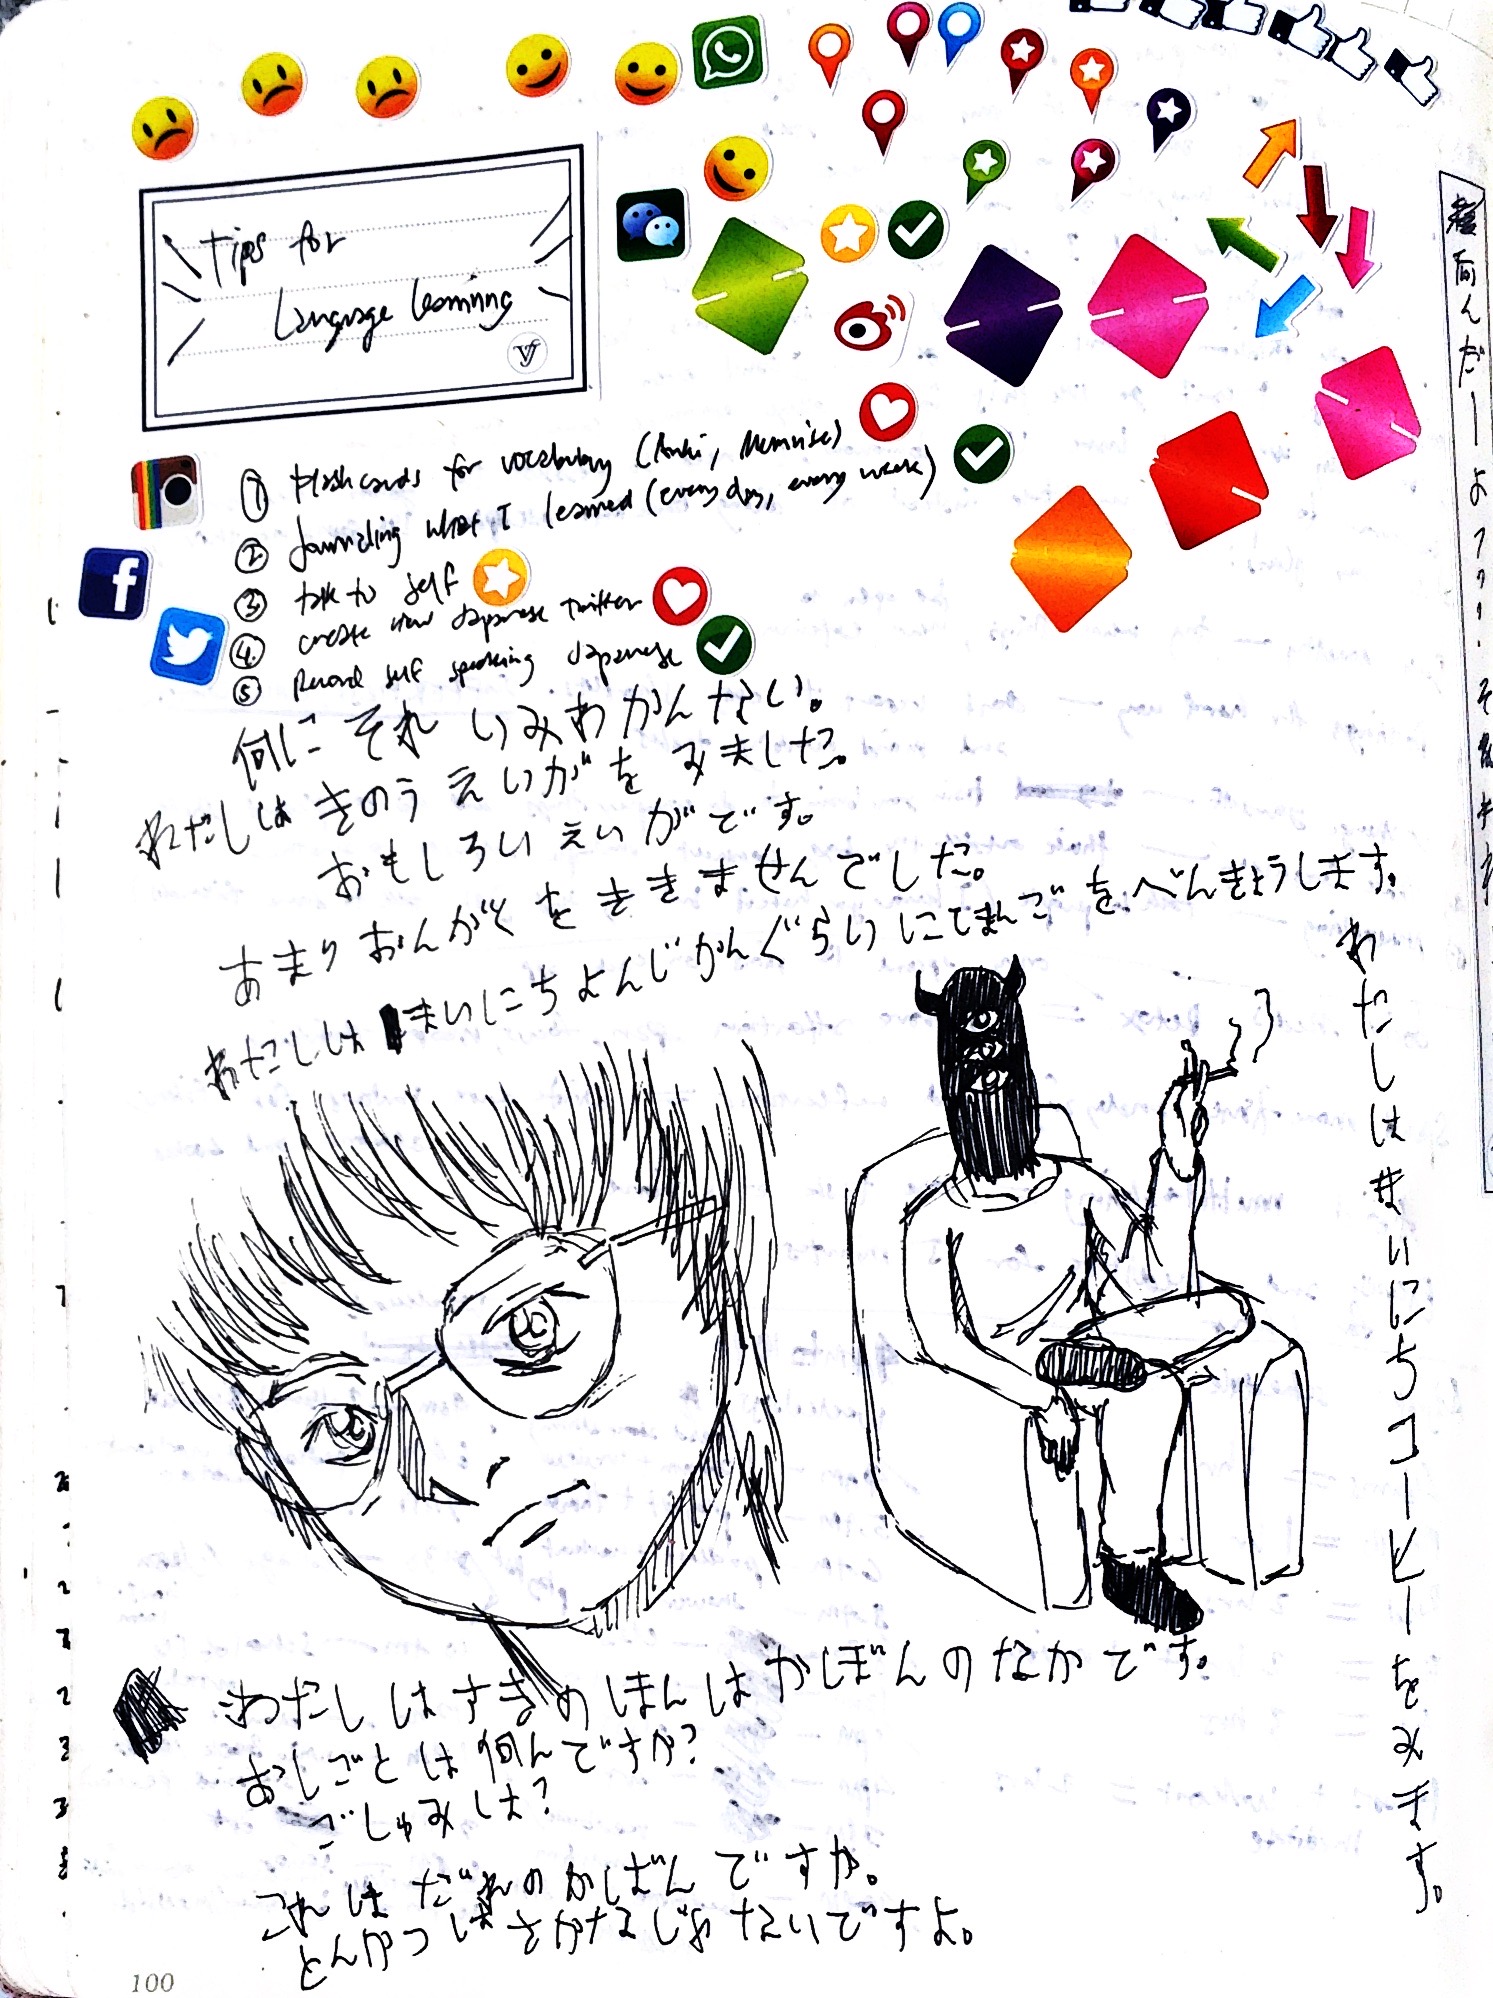 Tips for
Language Learning
① Flashcards for vocabulary (Anki, Memrise)
② Journaling what I learned (every day, every week)
③ talk to self
④ create new Japanese twitter
⑤ Record self speaking Japanese
何に それ いみわかんない。
わたしは きのう えいがを みました。
おもしろい えいがです。
あまり おんがくを ききませんでした。
わたしは まいにち よんじかんぐらい にほんごを べんきょうします。
わたしはまいにちコーヒーをみます。
わたしはすきのほんはかばんのなかです。
おしごとは何んですか?
ごしゅみは?
これはだれのかばんですか。
とんかつはさかなじゃないですよ。
100